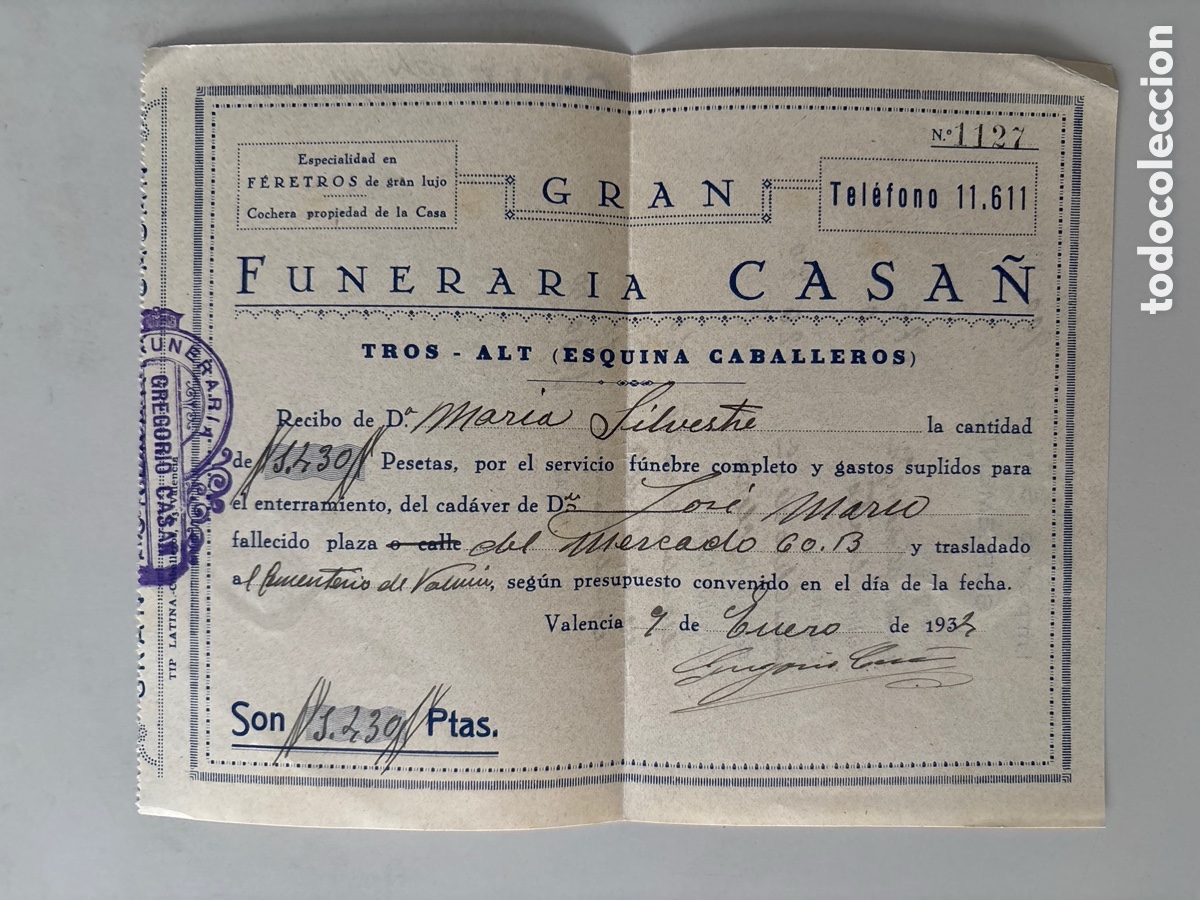 N.º 1127
Especialidad en
FÉRETROS de gran lujo
Cochera propiedad de la Casa
GRAN
Teléfono 11.611
FUNERARIA CASAÑ
TROS - ALT (ESQUINA CABALLEROS)
Recibo de Dª María Silvestre la cantidad
de Pesetas, por el servicio fúnebre completo y gastos suplidos para
el enterramiento, del cadáver de D. José Marco
fallecido plaza o calle del Mercado 60.B y trasladado
al Cementerio de, según presupuesto convenido en el día de la fecha.
Valencia 9 de Enero de 1932
Gregorio Casañ
Son Ptas.
FUNERARIA
GREGORIO CASAÑ
TIP LATINA
todocoleccion